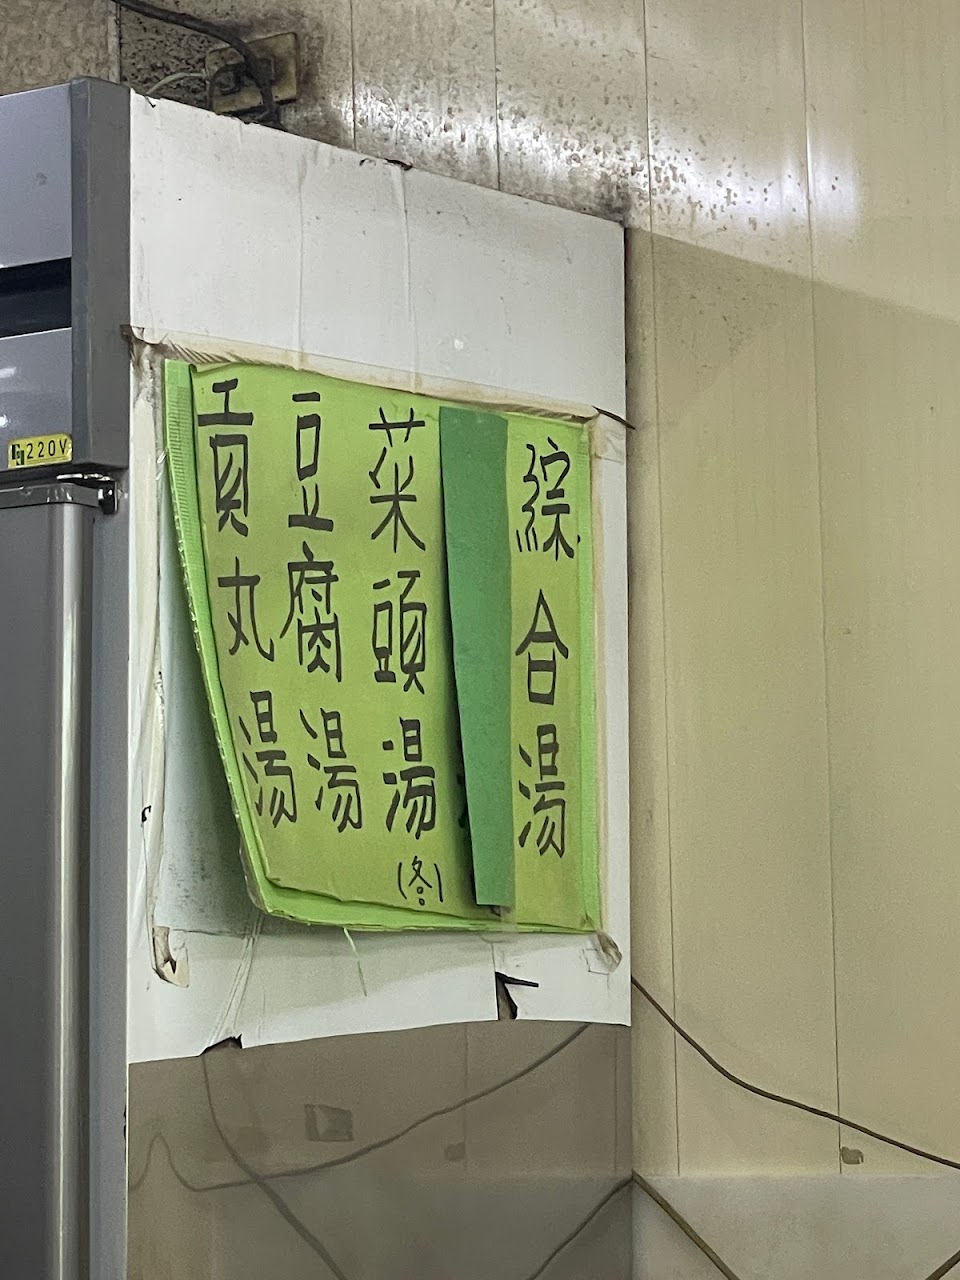 綜合湯
菜頭湯(冬)
豆腐湯
貢丸湯
220V